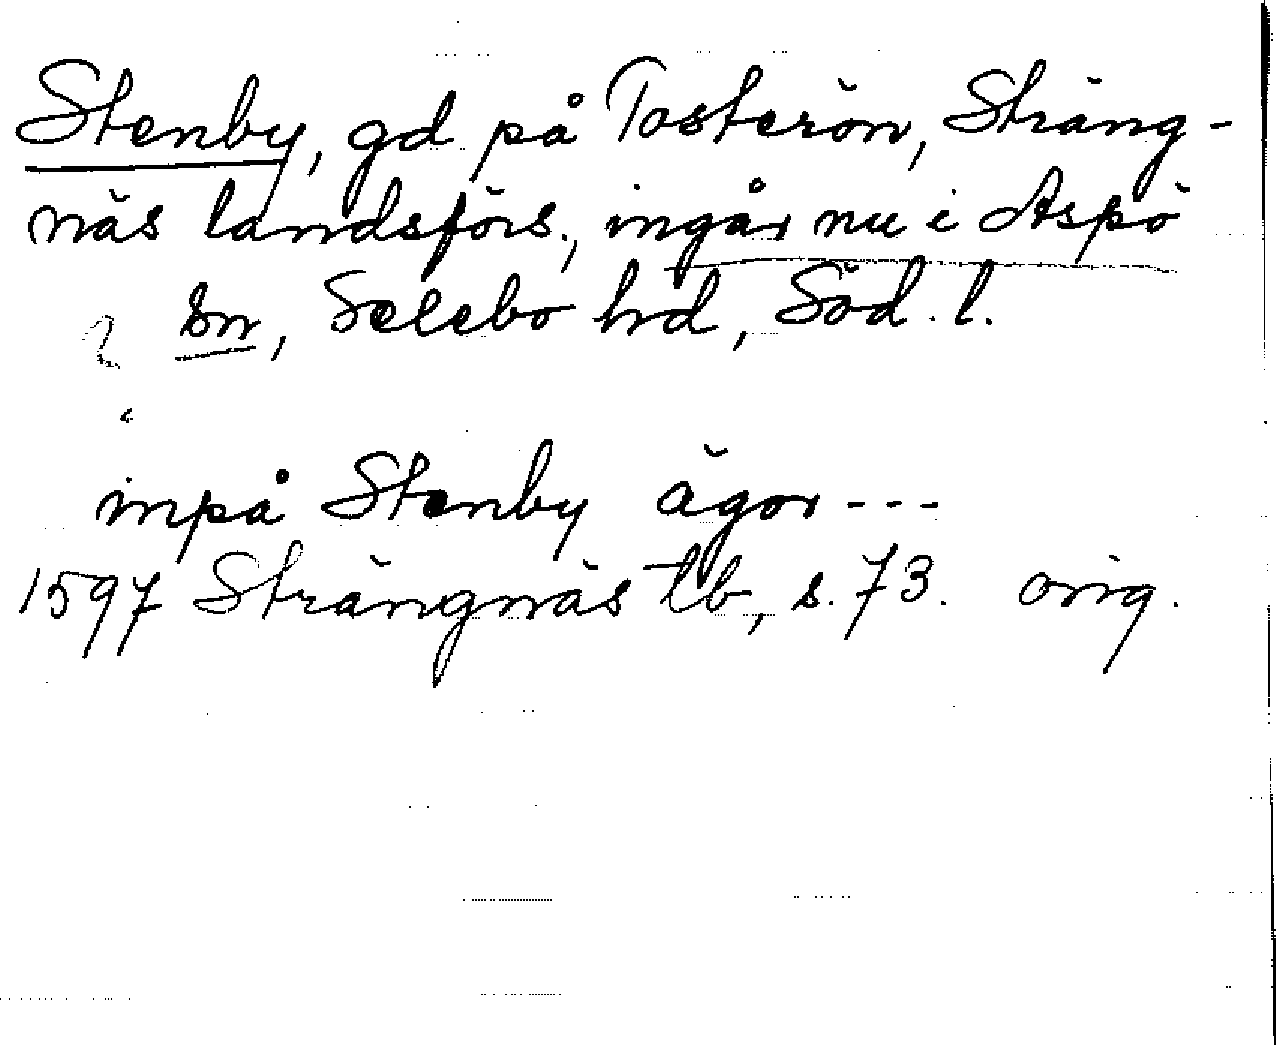 Stenby, gd på Tosterön, Sträng-
näs landsförs., ingår nu i Aspö
sn, Selebo hd, Söd. l.
inpå Stenby ägor ---
1597 Strängnäs tb, s. 73. orig.